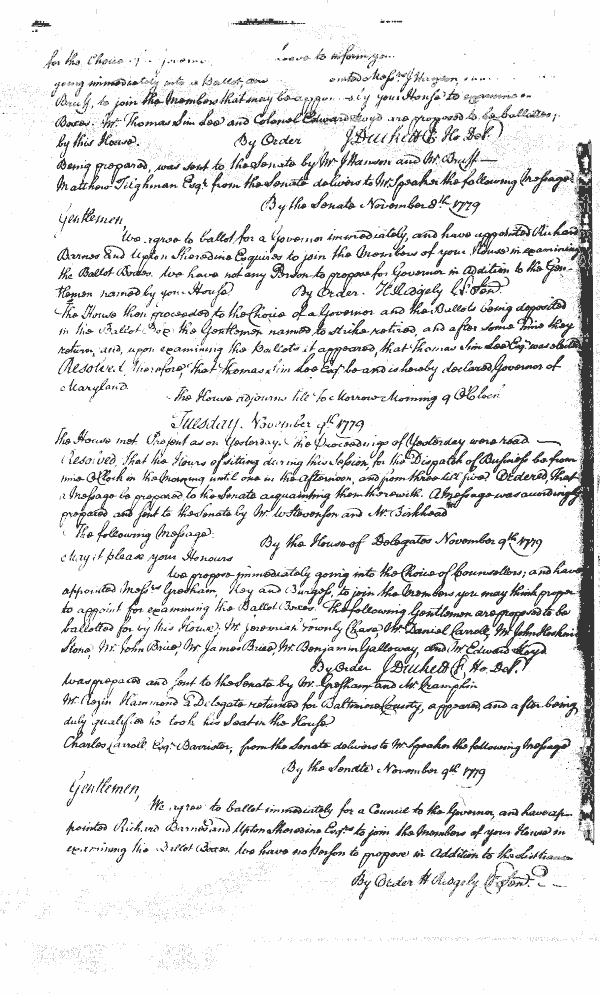 for the Choice of a leave to inform you
going immediately into a Ballot, and
Bruff, to join the Members that may be by your House to
Boxes. Mr. Thomas Sim Lee and Colonel Edward Lloyd are proposed to be ballotted
by this House. By Order J Duckett Cl. Ho. Del.
Being prepared, was sent to the Senate by Mr J Hanson and Mr. Bruff
Matthew Tilghman Esqr. from the Senate delivers to Mr Speaker the following Message
By the Senate November 8th. 1779
Gentlemen,
We agree to ballot for a Governor immediately, and have appointed Richard
Barnes and Upton Sheredine Esquires to join the Members of your House in examining
the Ballot Boxes. We have not any Person to propose for Governor in addition to the Gen-
tlemen named by your House By Order. H. Ridgely Cl. Sen.
The House then proceeded to the Choice of a Governor and the Ballots being deposited
in the Ballot Box the Gentlemen named to strike retired, and after some time they
return, and, upon examining the Ballots it appeared, that Thomas Sim Lee Esqr. was elected
Resolved, therefore, that Thomas Sim Lee Esqr. be and is hereby declared Governor of
Maryland.
The House adjourns till to Morrow Morning 9 OClock
Tuesday. November 9th. 1779
The House met. Present as on Yesterday. The Proceedings of Yesterday were read
Resolved, That the Hours of sitting during this Session, for the Dispatch of Business be from
nine OClock in the morning until one in the afternoon, and from three till five. Ordered, That
a Message be prepared to the Senate acquainting them therewith. A Message was accordingly
prepared and sent to the Senate by Mr. W Stevenson and Mr. Birkhead
The following Message.
By the House of Delegates November 9th. 1779
May it please your Honours
We propose immediately going into the Choice of Counsellors; and have
appointed Messrs. Gresham, Key and Burgess, to join the Members you may think proper
to appoint for examining the Ballot Boxes. The following Gentlemen are proposed to be
ballotted for by this House, Mr. Jeremiah Townly Chase, Mr. Daniel Carroll, Mr. John Hoskins
Stone, Mr. John Brice, Mr. James Brice, Mr. Benjamin Galloway, and Mr. Edward Lloyd
By Order J Duckett Cl. Ho. Del.
was prepared and sent to the Senate by Mr. Gresham and Mr Cramphin
Mr. Rezin Hammond a Delegate returned for Baltimore County, appeared, and after being
duly qualified he took his Seat in the House
Charles Carroll Esqr. Barrister, from the Senate delivers to Mr Speaker the following Message
By the Senate November 9th. 1779
Gentlemen,
We agree to ballot immediately for a Council to the Governor, and have ap-
pointed Richard Barnes and Upton Sheredine Esqrs. to join the Members of your House in
examining the Ballot Boxes. We have no Person to propose in Addition to the List
By Order H Ridgely Cl. Sen.